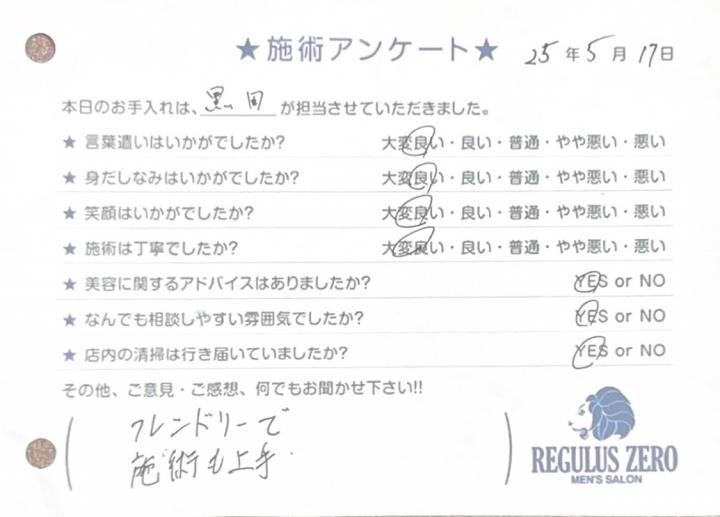 ★施術アンケート★ 25年5月17日
本日のお手入れは、黒田が担当させていただきました。
★ 言葉遣いはいかがでしたか? 大変良い・良い・普通・やや悪い・悪い
★ 身だしなみはいかがでしたか? 大変良い・良い・普通・やや悪い・悪い
★ 笑顔はいかがでしたか? 大変良い・良い・普通・やや悪い・悪い
★ 施術は丁寧でしたか? 大変良い・良い・普通・やや悪い・悪い
★ 美容に関するアドバイスはありましたか? YES or NO
★ なんでも相談しやすい雰囲気でしたか? YES or NO
★ 店内の清掃は行き届いていましたか? YES or NO
その他、ご意見・ご感想、何でもお聞かせ下さい!!
フレンドリーで
施術も上手
REGULUS ZERO
MEN'S SALON